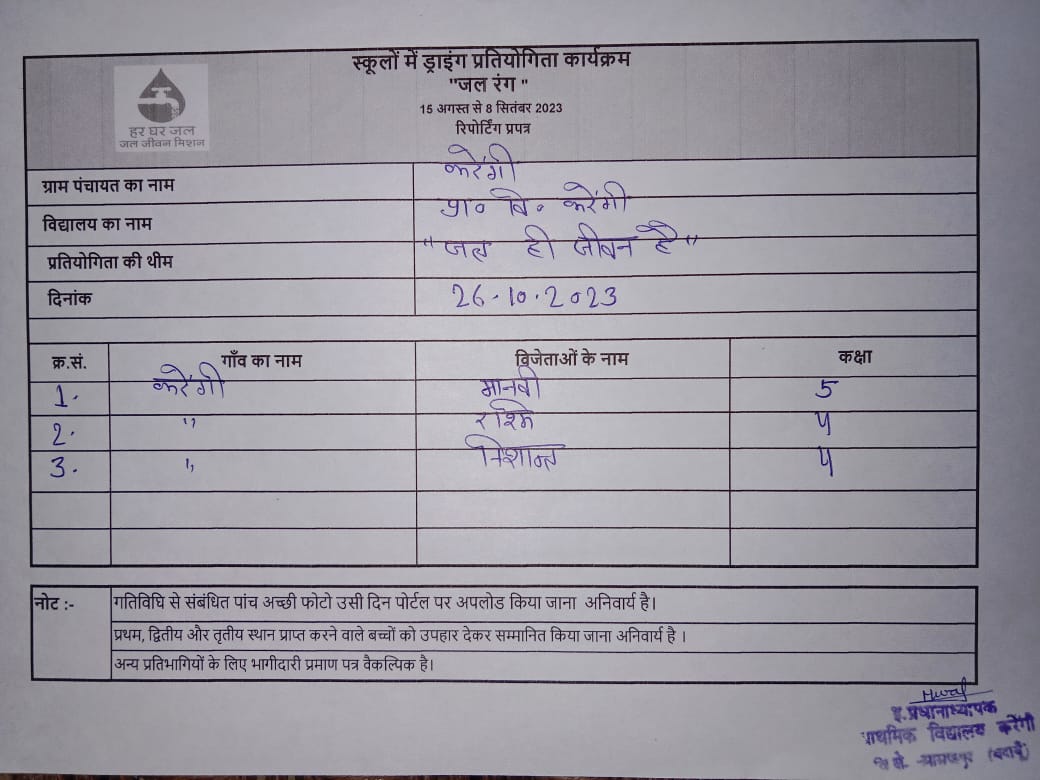 स्कूलों में ड्राइंग प्रतियोगिता कार्यक्रम
"जल रंग "
15 अगस्त से 8 सितंबर 2023
रिपोर्टिंग प्रपत्र
हर घर जल
जल जीवन मिशन
ग्राम पंचायत का नाम करेंगी
विद्यालय का नाम प्रा० वि० करेंगी
प्रतियोगिता की थीम "जल ही जीवन है"
दिनांक 26.10.2023
क्र.सं. गाँव का नाम विजेताओं के नाम कक्षा
1. करेंगी मानवी 5
2. " रश्मि 4
3. " निशान्त 4
नोट :- गतिविधि से संबंधित पांच अच्छी फोटो उसी दिन पोर्टल पर अपलोड किया जाना अनिवार्य है।
प्रथम, द्वितीय और तृतीय स्थान प्राप्त करने वाले बच्चों को उपहार देकर सम्मानित किया जाना अनिवार्य है ।
अन्य प्रतिभागियों के लिए भागीदारी प्रमाण पत्र वैकल्पिक है।
इ.प्रधानाध्यापक
प्राथमिक विद्यालय करेंगी
(बदायूँ)